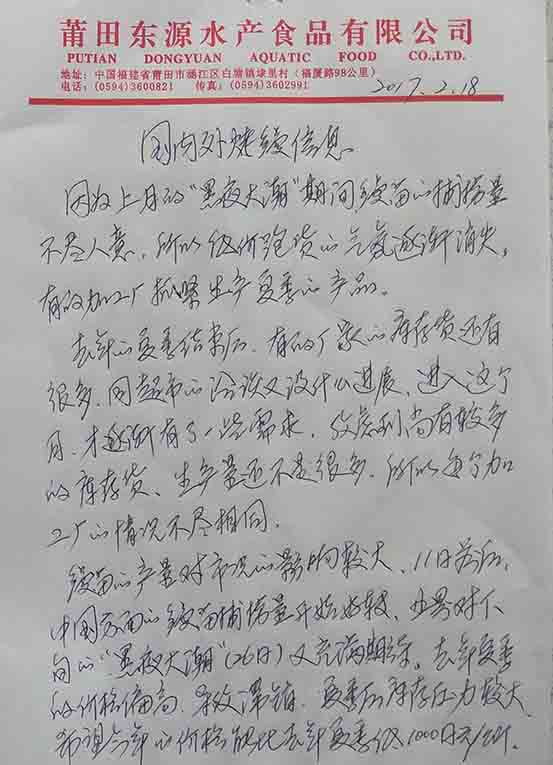 莆田东源水产食品有限公司
PUTIAN DONGYUAN AQUATIC FOOD CO.,LTD.
地址：中国福建省莆田市涵江区白塘镇埭里村（福厦路98公里）
电话：(0594)3600821 传真：(0594)3602991
2017.2.18
国内外烤鳗信息
因为上月的“黑夜大潮”期间鳗苗的捕捞量
不尽人意，所以低价跑货的气氛逐渐消失，
有的加工厂抓紧生产夏季的产品。
去年的夏季结束后，有的厂家的库存货还有
很多，同超市的洽谈又没什么进展，进入这个
月，才逐渐有了一些需求，考虑到尚有较多
的库存货、生产量还不是很多，所以每个加
工厂的情况不尽相同。
鳗苗的产量对市况的影响较大，11日前后，
中国方面的鳗苗捕捞量开始好转，业界对下
旬的“黑夜大潮”(26日)又充满期待。去年夏季
的价格偏高，导致滞销，夏季后库存压力较大
希望今年的价格能比去年夏季低1000日元/公斤。